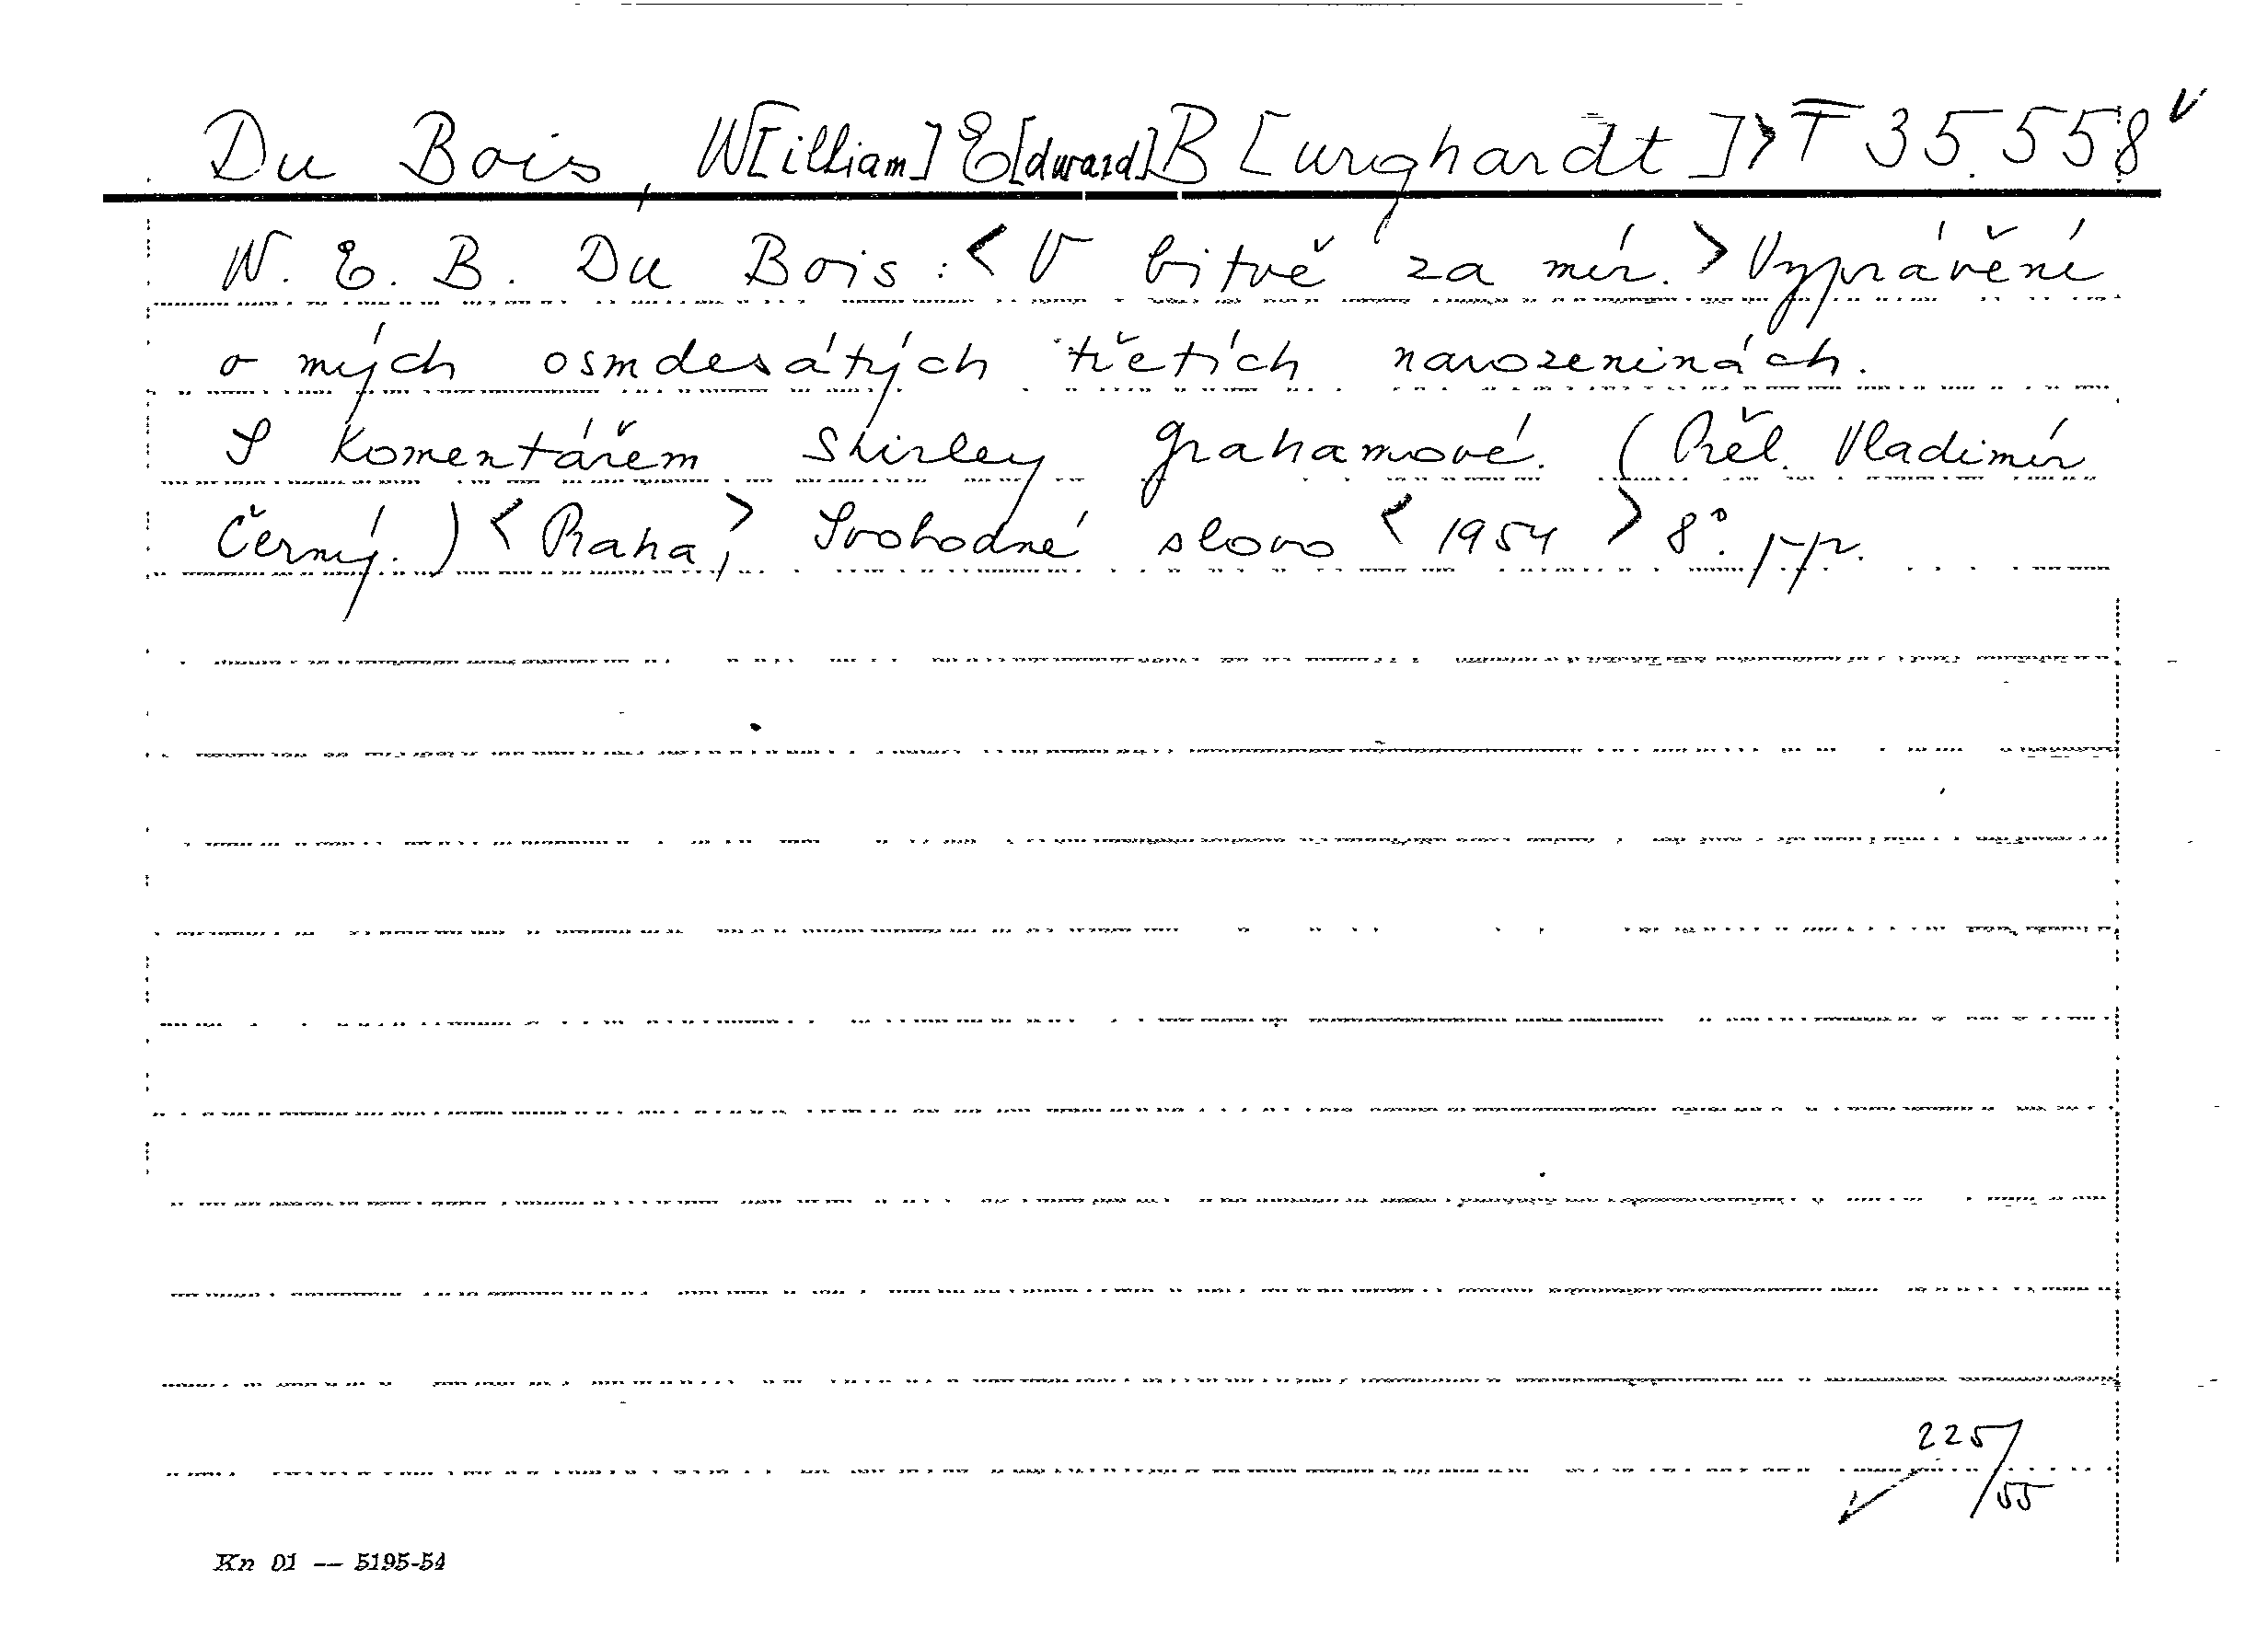 Du Bois, W[illiam] E[dward] B[urghardt]> T 35.558
W. E. B. Du Bois: <V bitvě za mír.> Vyprávění
o mých osmdesátých třetích narozeninách.
S komentářem Shirley Grahamové. (Přel. Vladimír
Černý.) <Praha,> Svobodné slovo <1954> 8°.
225/55
Kn 01 — 5195-54